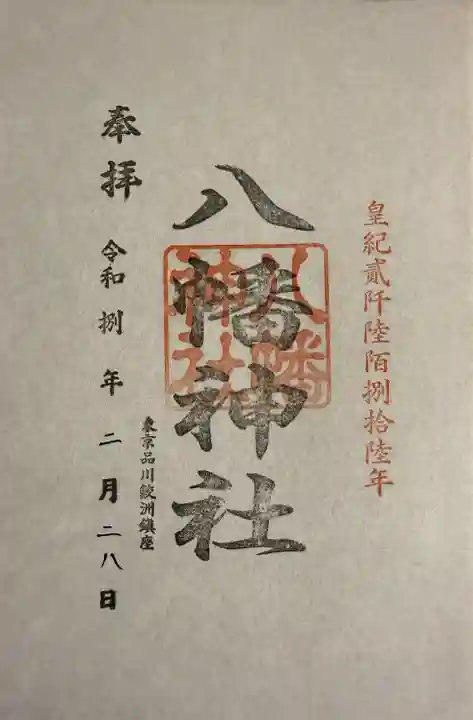 皇紀貳阡陸陌捌拾陸年
八幡神社
八幡
神社
東京品川鮫洲鎮座
奉拝 令和捌年 二月二八日